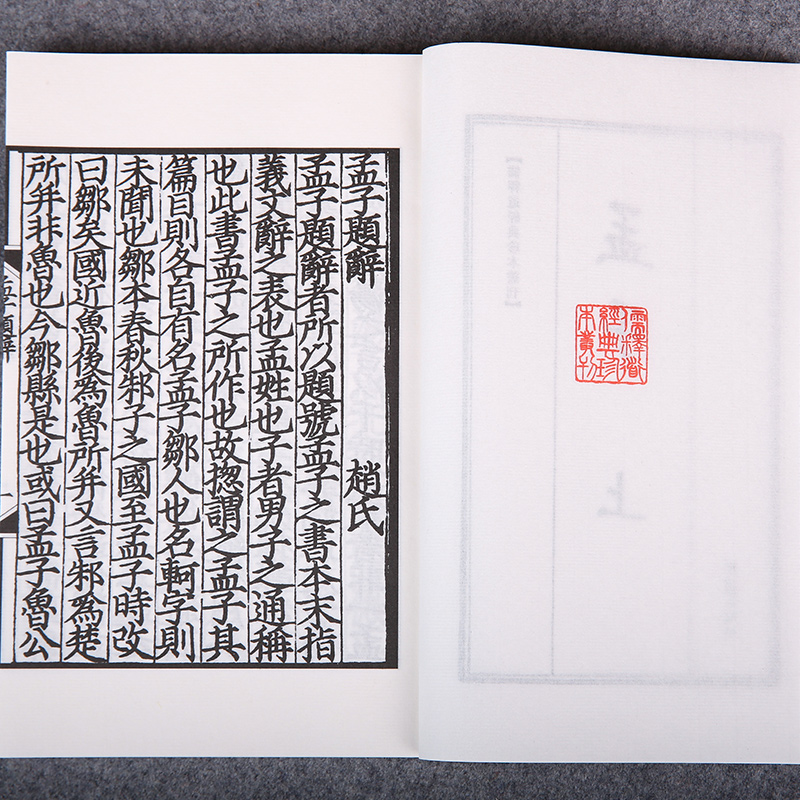 儒釋道
經典珍
本叢刊
孟子題辭 趙氏
孟子題辭者所以題號孟子之書本末指
義文辭之表也孟姓也子者男子之通稱
也此書孟子之所作也故揔謂之孟子其
篇目則各自有名孟子鄒人也名軻字則
未聞也鄒本春秋邾子之國至孟子時改
曰鄒矣國近魯後為魯所并又言邾為楚
所并非魯也今鄒縣是也或曰孟子魯公